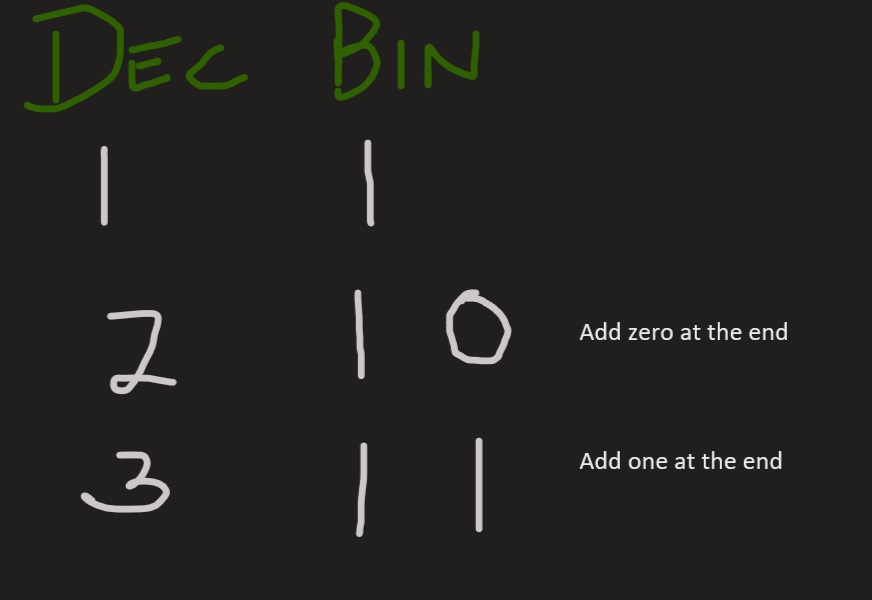 DEC BIN
1 1
2 1 0 Add zero at the end
3 1 1 Add one at the end